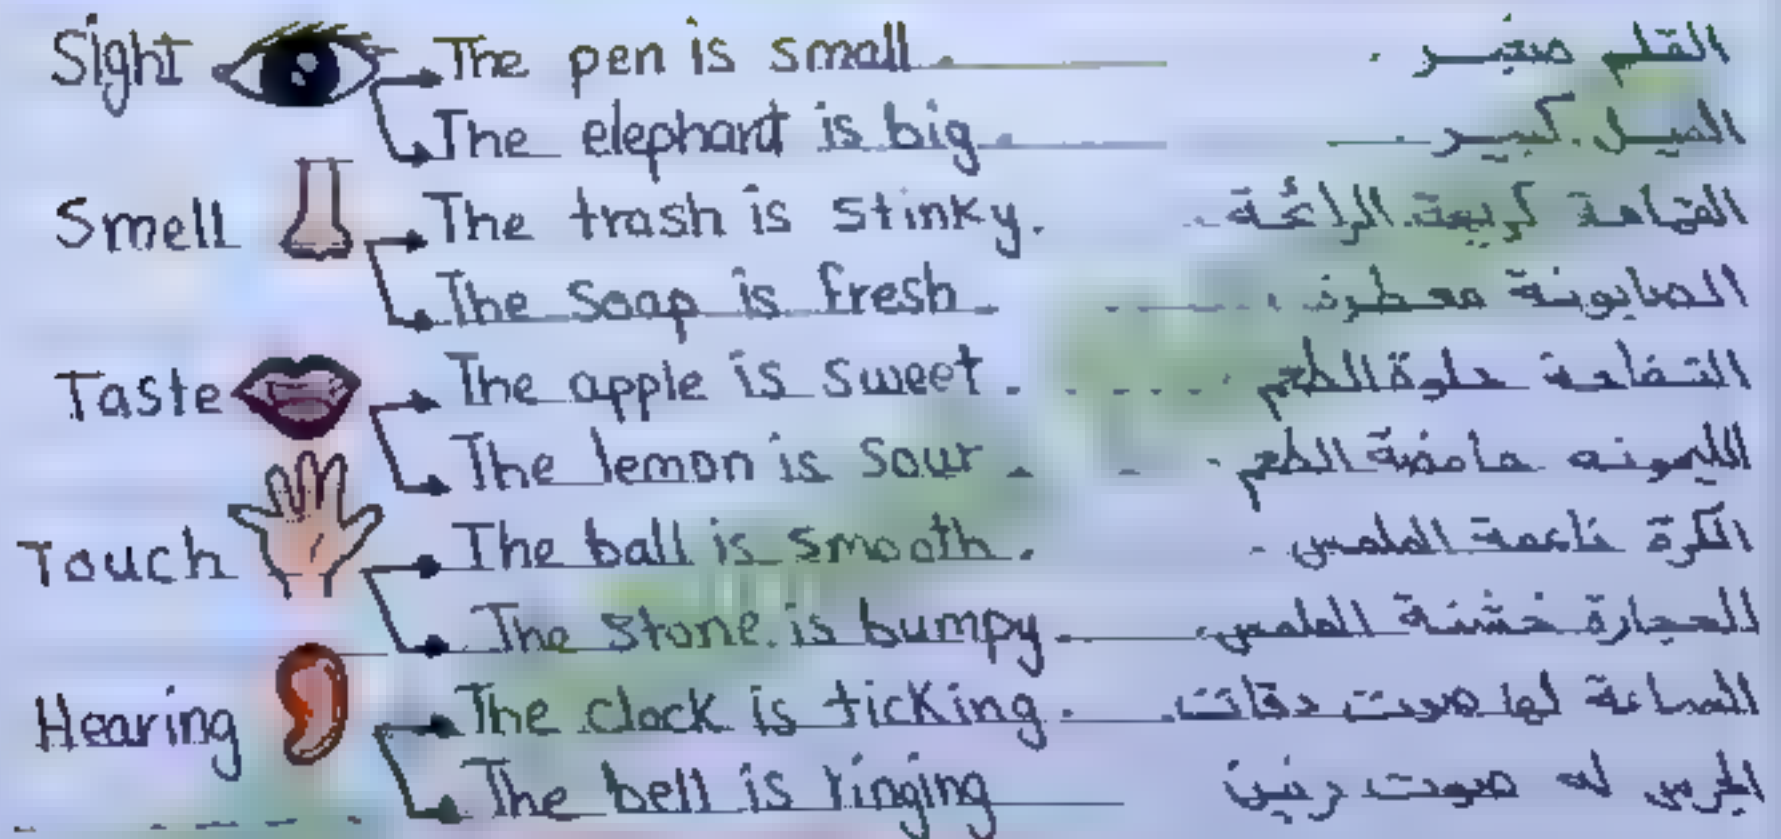 Sight The pen is small. القلم صغير.
The elephant is big. الفيل كبير.
Smell The trash is stinky. القمامة كريهة الرائحة.
The Soap is fresh. الصابونة معطرة.
Taste The apple is sweet. التفاحة حلوة الطعم
The lemon is Sour. الليمونه حامضة الطعم.
Touch The ball is smooth. الكرة ناعمة الملمس.
The stone is bumpy. الحجارة خشنة الملمس.
Hearing The clock is ticking. الساعة لها صوت دقات.
The bell is ringing الجرس له صوت رنين